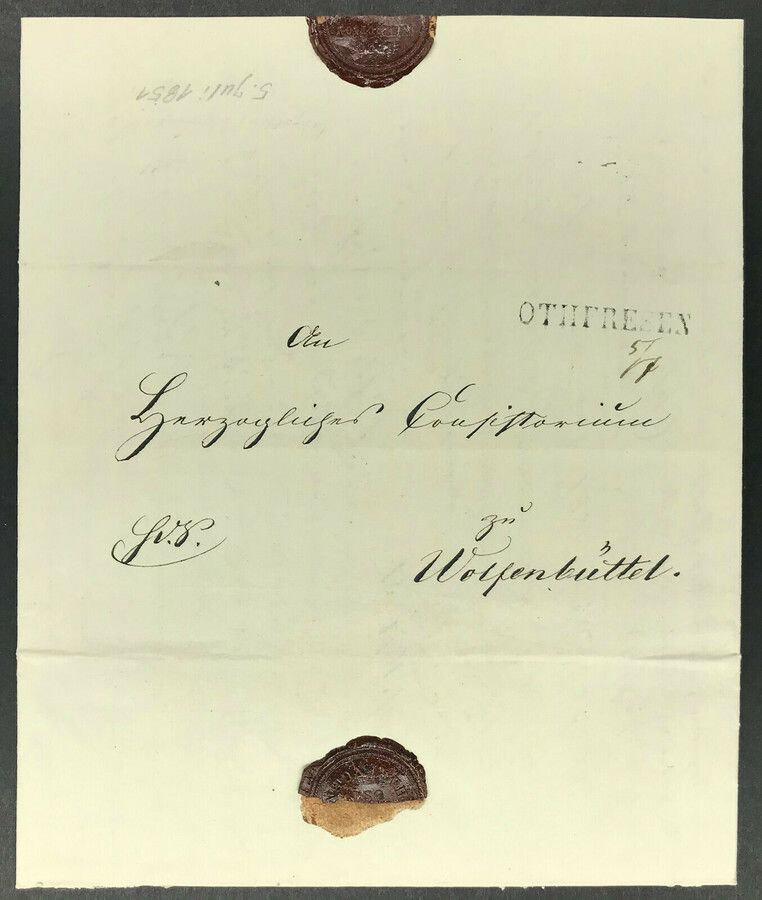 5. Juli 1851
OTHFRESEN
5/7
An
Herzogliches Consistorium
H.d.S.
zu
Wolfenbüttel.